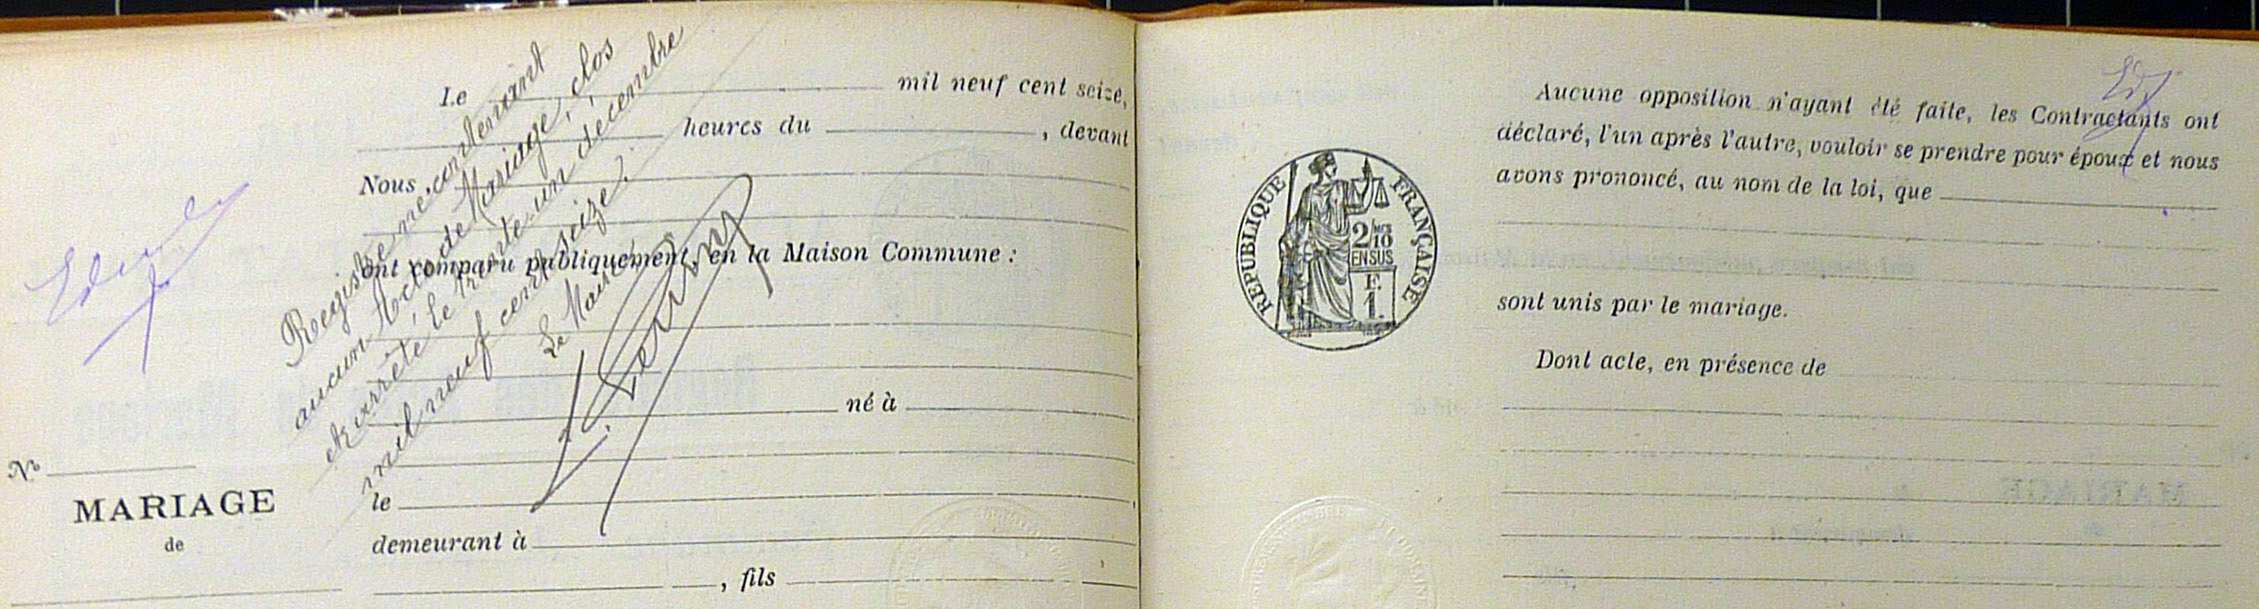 Le mil neuf cent seize,
heures du , devant
Nous
ont comparu publiquement, en la Maison Commune :
né à
le
demeurant à
, fils
Registre ne contenant
aucun Acte de Mariage, clos
et arrêté le trente un décembre
mil neuf cent seize.
Le Maire,
No
MARIAGE
de
RÉPUBLIQUE FRANÇAISE
2/10
EN SUS
F.
1.
Aucune opposition n'ayant été faite, les Contractants ont
déclaré, l'un après l'autre, vouloir se prendre pour époux et nous
avons prononcé, au nom de la loi, que
sont unis par le mariage.
Dont acte, en présence de